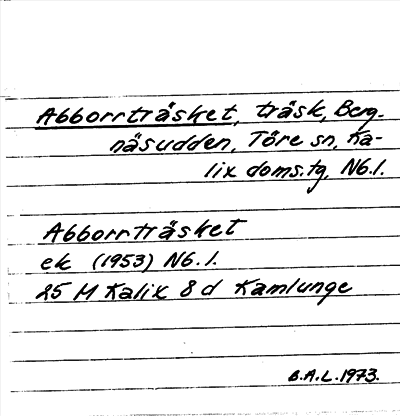 Abborrträsket, träsk, Berg-
näsudden, Töre sn, Ka-
lix doms.tg, Nb.l.
Abborrträsket
ek (1953) Nb.l.
25 M Kalix 8 d Kamlunge
B.A.L. 1973.